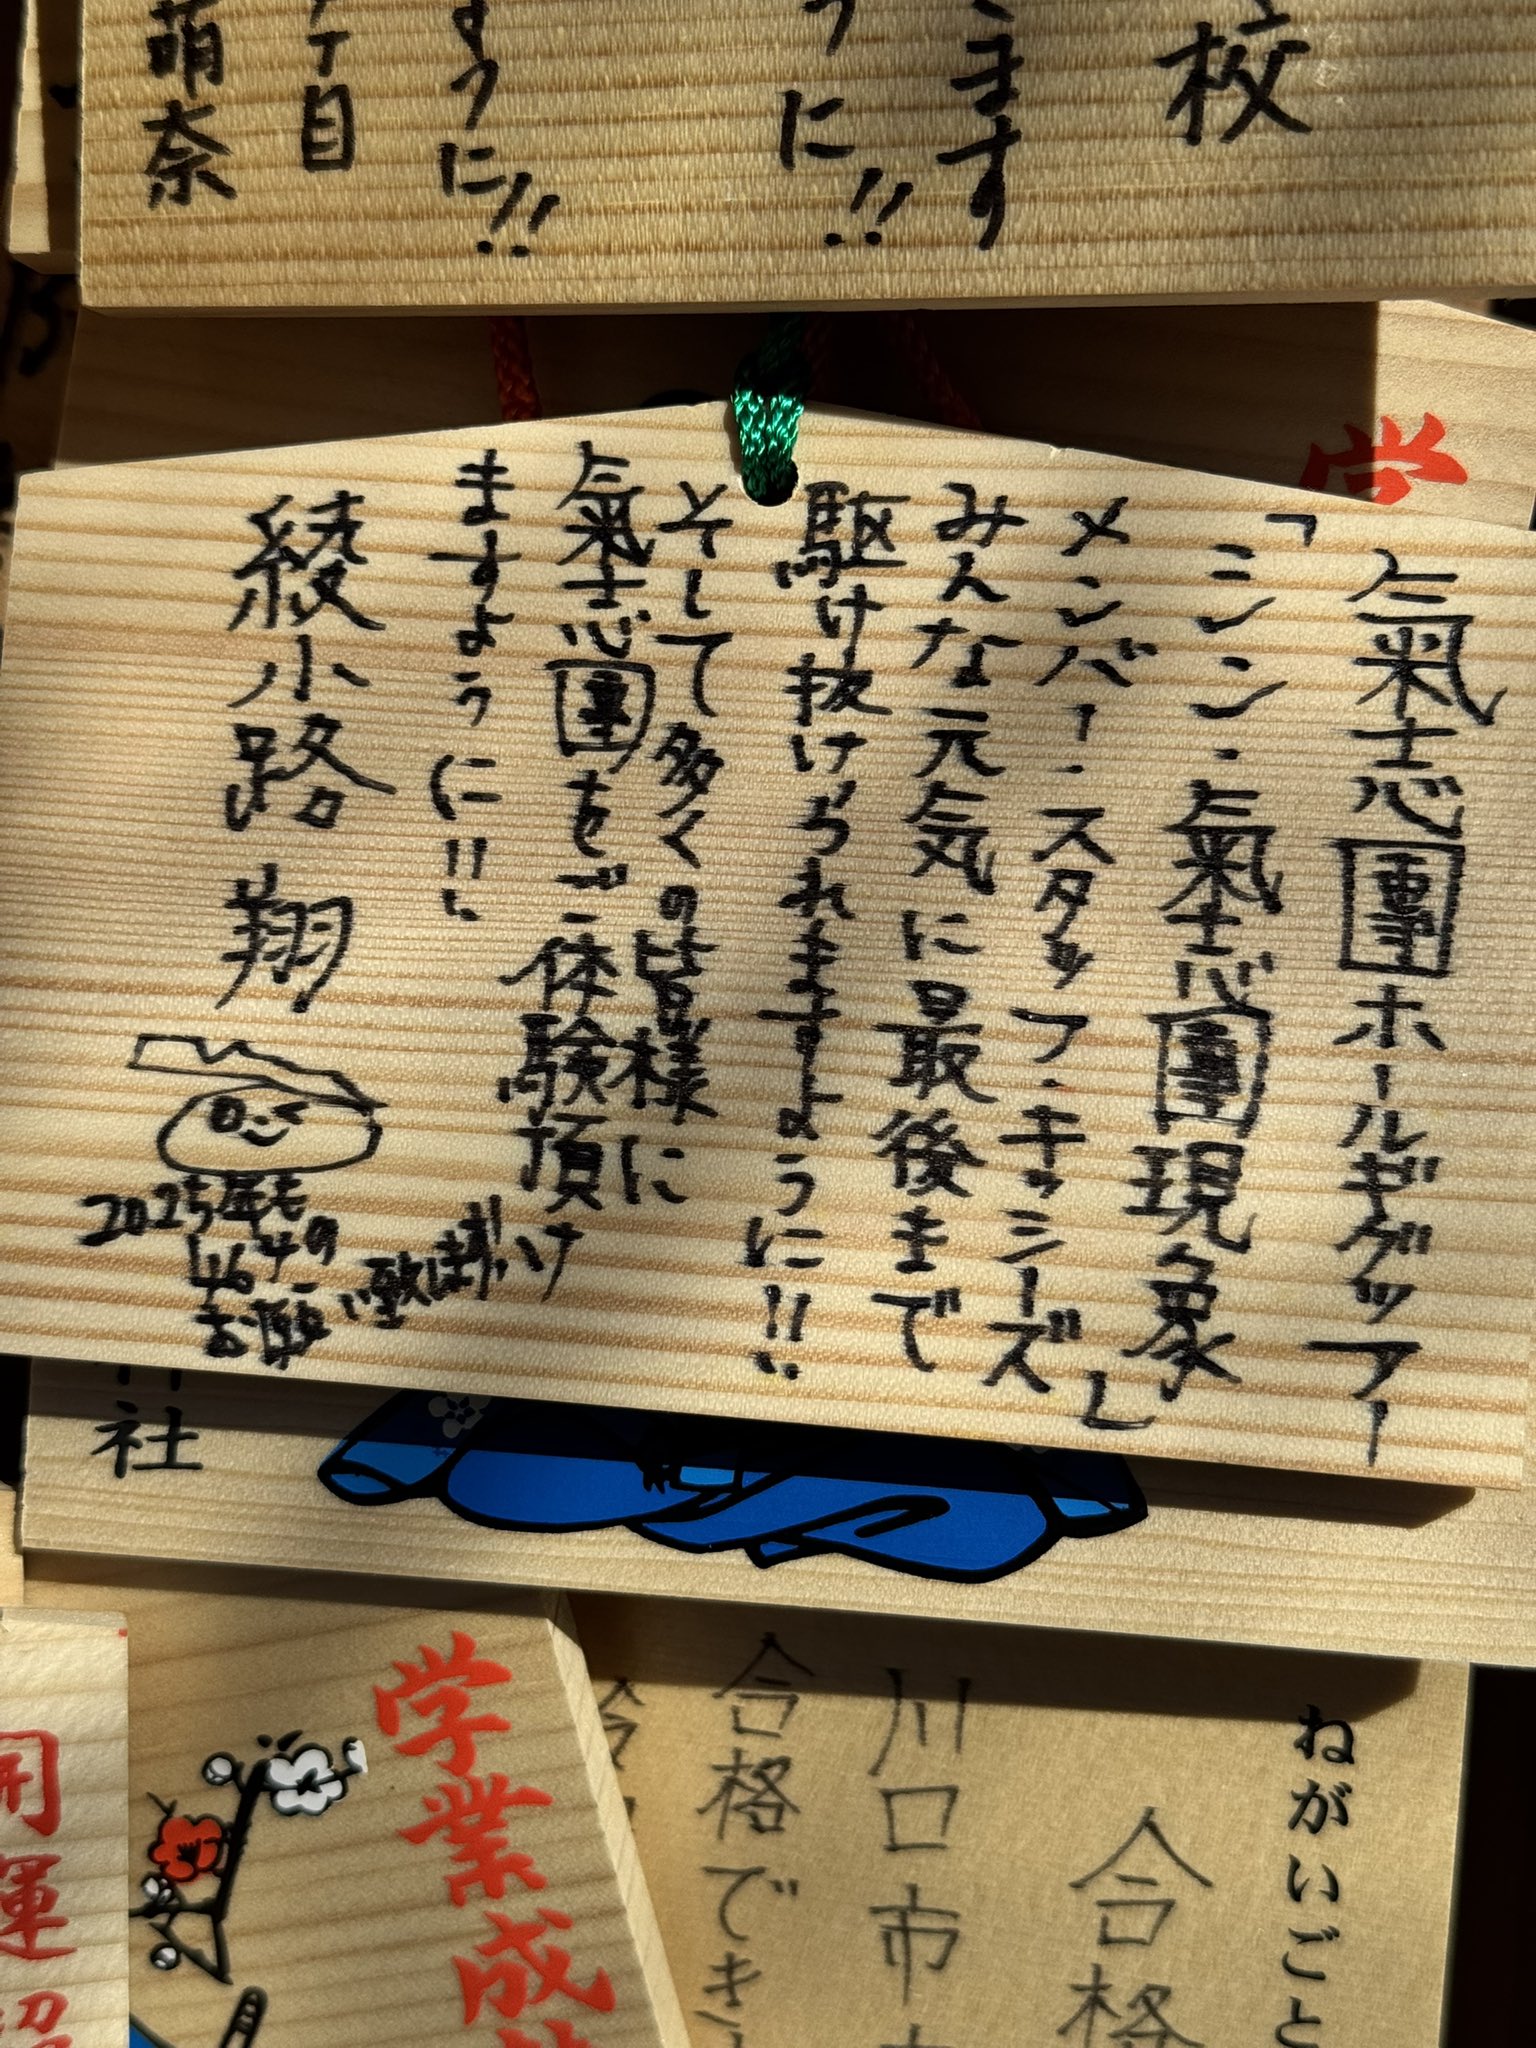 校
ます
うに!!
すうに!!
丁目
萌奈
学
氣志團ホールギグツアー
「シン・氣志團現象」
メンバー・スタッフ・キッシーズ
みんな元気に最後まで
駆け抜けられますように!!
そして多くの皆様に
氣志團をご体験頂け
ますように!!
綾小路 翔
2025年も
1464の
お願い致します
社
ねがいごと
合格
川口市
合格でき
学業成
開運